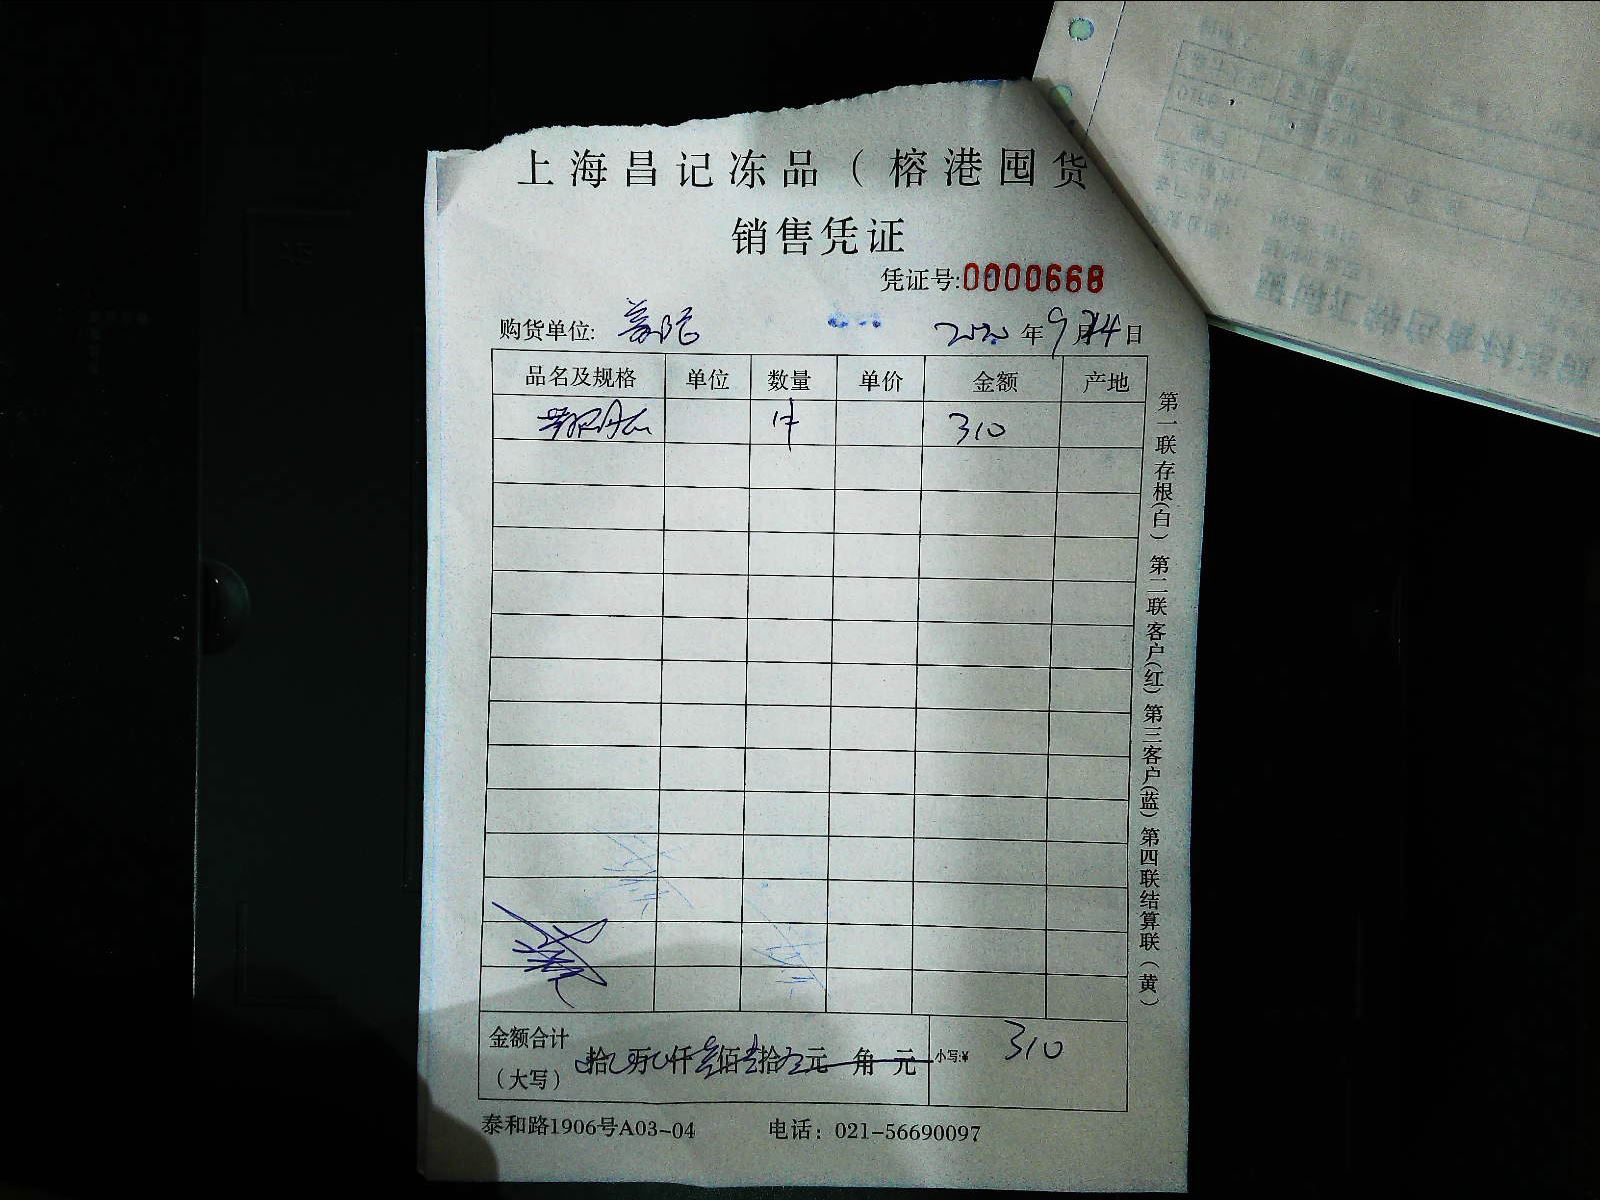 上海昌记冻品（榕港囤货
销售凭证
凭证号:0000668
购货单位: 2020年9月24日
品名及规格 单位 数量 单价 金额 产地
1件 310
金额合计
（大写） 拾 万 仟叁佰壹拾 元 角 元 小写:¥ 310
泰和路1906号A03-04 电话：021-56690097
第一联存根(白) 第二联客户(红) 第三客户(蓝) 第四联结算联(黄)